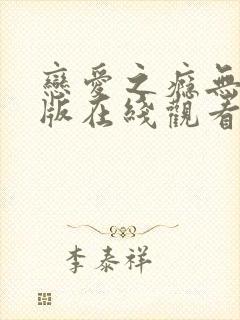 戀愛之癮無
版在綫觀看
李泰祥